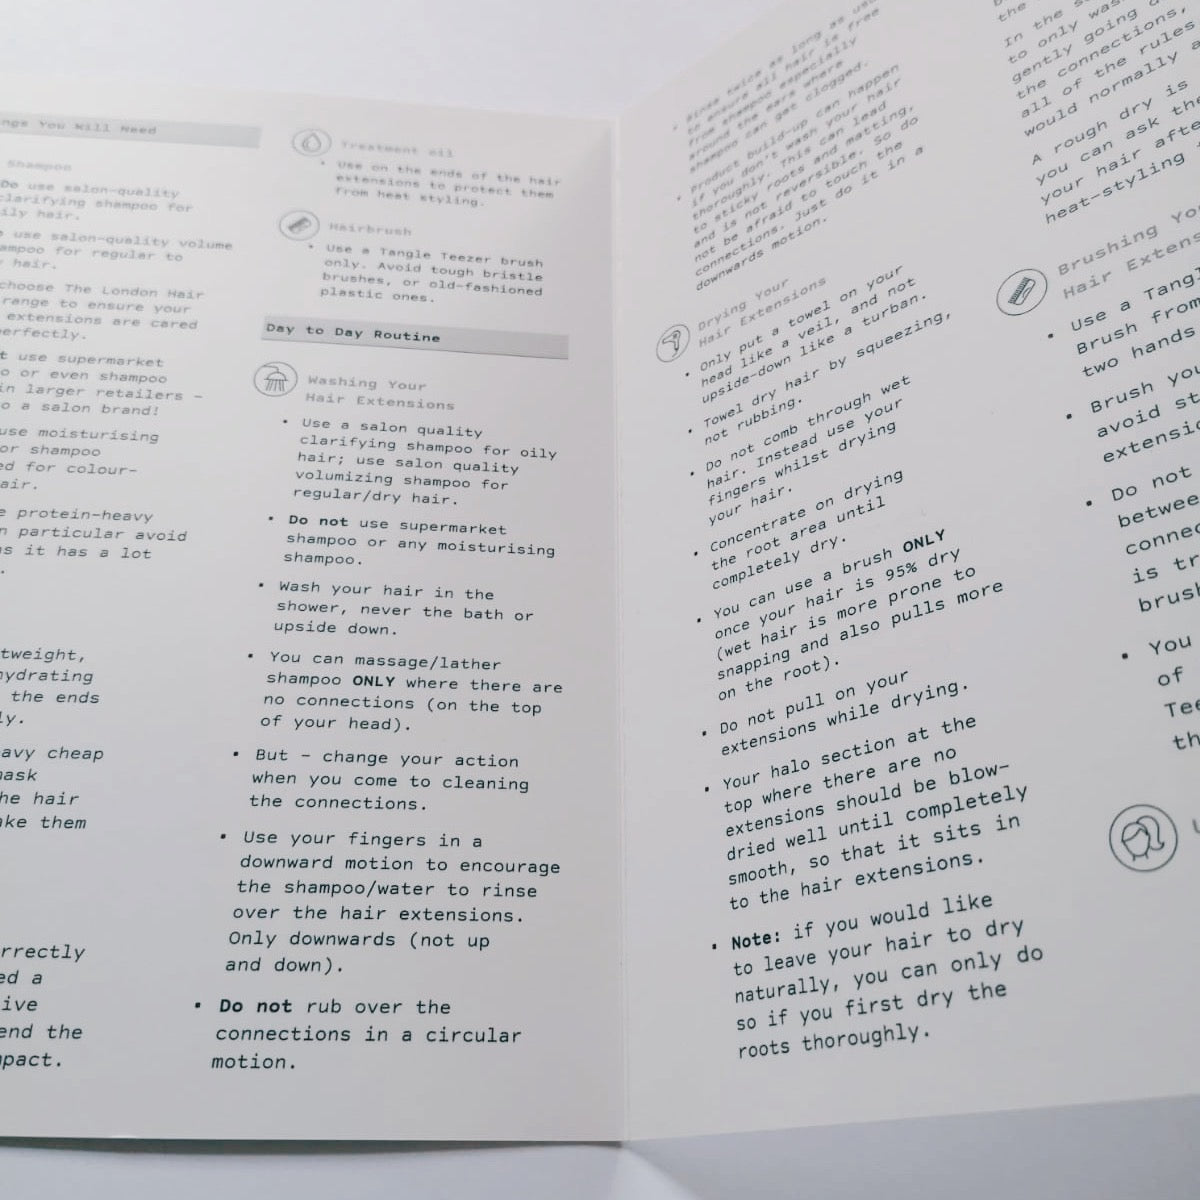 ngs You Will Need
Shampoo
Do use salon-quality
clarifying shampoo for
ily hair.
use salon-quality volume
ampoo for regular to
hair.
choose The London Hair
range to ensure your
extensions are cared
perfectly.
t use supermarket
o or even shampoo
in larger retailers –
o a salon brand!
use moisturising
or shampoo
ed for colour-
air.
e protein-heavy
n particular avoid
s it has a lot
.
tweight,
hydrating
the ends
ly.
eavy cheap
mask
he hair
ake them
rrectly
ed a
ive
end the
mpact.
Treatment oil
• Use on the ends of the hair
extensions to protect them
from heat styling.
Hairbrush
• Use a Tangle Teezer brush
only. Avoid tough bristle
brushes, or old-fashioned
plastic ones.
Day to Day Routine
Washing Your
Hair Extensions
• Use a salon quality
clarifying shampoo for oily
hair; use salon quality
volumizing shampoo for
regular/dry hair.
• Do not use supermarket
shampoo or any moisturising
shampoo.
• Wash your hair in the
shower, never the bath or
upside down.
• You can massage/lather
shampoo ONLY where there are
no connections (on the top
of your head).
• But – change your action
when you come to cleaning
the connections.
• Use your fingers in a
downward motion to encourage
the shampoo/water to rinse
over the hair extensions.
Only downwards (not up
and down).
• Do not rub over the
connections in a circular
motion.
• Rinse twice as long as
to ensure all hair is free
from shampoo especially
around the ears where
shampoo can get clogged.
• Product build-up can happen
if you don't wash your hair
thoroughly. This can lead
to sticky roots and matting,
and is not reversible. So do
not be afraid to touch the
connections. Just do it in a
downwards motion.
Drying Your
Hair Extensions
• Only put a towel on your
head like a veil, and not
upside-down like a turban.
• Towel dry hair by squeezing,
not rubbing.
• Do not comb through wet
hair. Instead use your
fingers whilst drying
your hair.
• Concentrate on drying
the root area until
completely dry.
• You can use a brush ONLY
once your hair is 95% dry
(wet hair is more prone to
snapping and also pulls more
on the root).
• Do not pull on your
extensions while drying.
• Your halo section at the
top where there are no
extensions should be blow-
dried well until completely
smooth, so that it sits in
to the hair extensions.
• Note: if you would like
to leave your hair to dry
naturally, you can only do
so if you first dry the
roots thoroughly.
the
In the s
to only was
gently going
the connections,
all of the rules
would normally a
A rough dry is
you can ask the
your hair afte
heat-styling
Brushing Yo
Hair Extens
• Use a Tangl
Brush from
two hands
• Brush you
avoid st
extensio
• Do not
betwee
connec
is tr
brush
• You
of
Tee
th